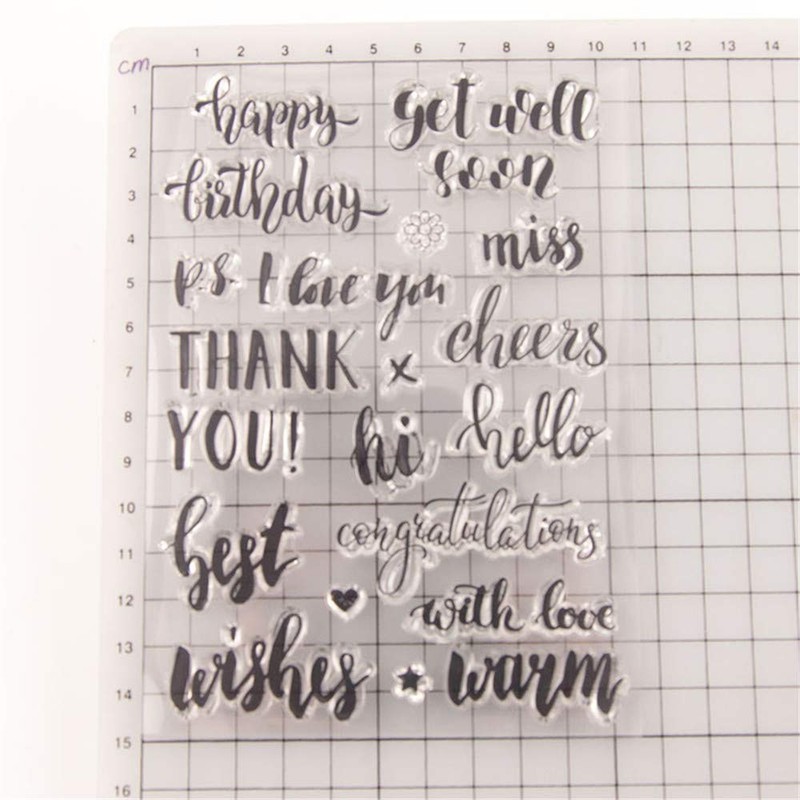 1 2 3 4 5 6 7 8 9 10 11 12 13 14
cm
1
2
3
4
5
6
7
8
9
10
11
12
13
14
15
16
happy
birthday
get well
soon
miss
p.s. I love you
THANK x
YOU!
cheers
hi
hello
best
congratulations
with love
wishes
warm